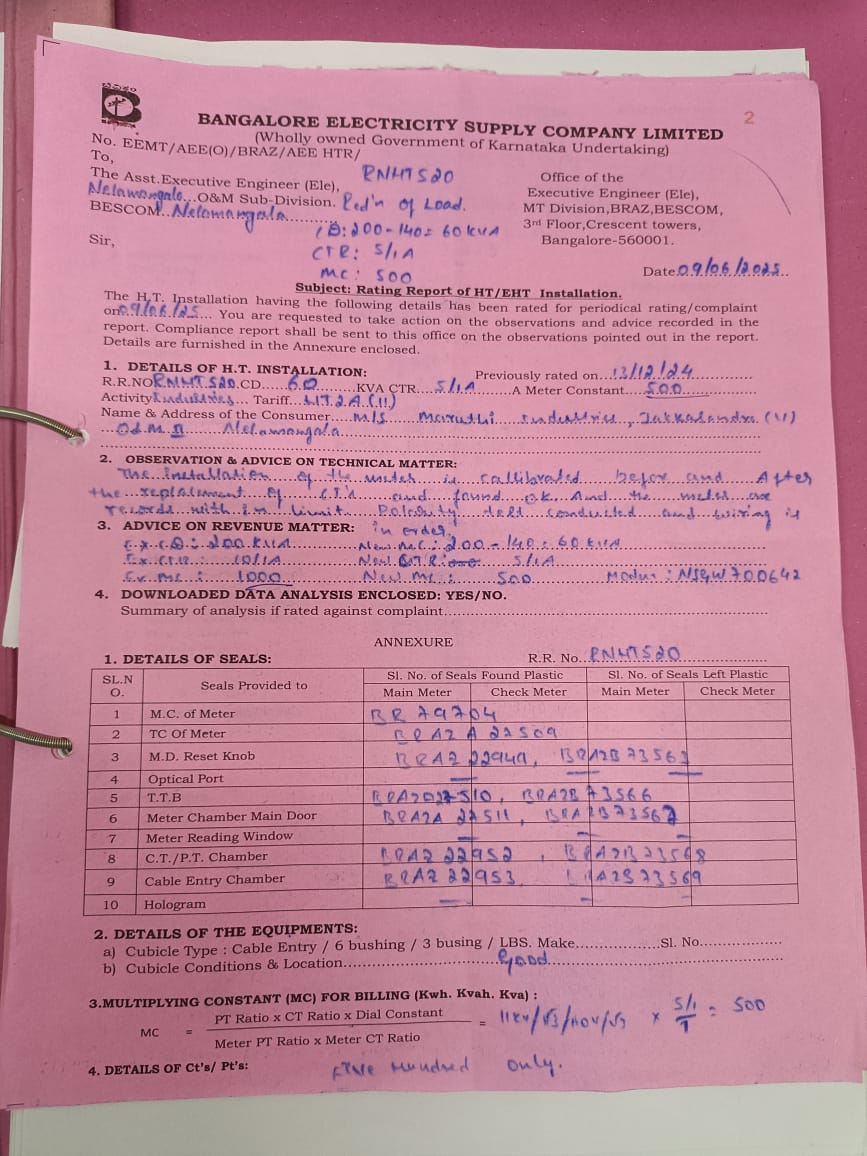 2
BANGALORE ELECTRICITY SUPPLY COMPANY LIMITED
(Wholly owned Government of Karnataka Undertaking)
No. EEMT/AEE(O)/BRAZ/AEE HTR/
To,
The Asst.Executive Engineer (Ele), RNHT520
Nelamangala...O&M Sub-Division. Red'n of Load.
BESCOM..Nelamangala
CD: 200-140= 60 KVA
Sir,
CTR: 5/1A
MC: 500
Office of the
Executive Engineer (Ele),
MT Division,BRAZ,BESCOM,
3rd Floor,Crescent towers,
Bangalore-560001.
Date 09/06/2025
Subject: Rating Report of HT/EHT Installation.
The H.T. Installation having the following details has been rated for periodical rating/complaint
on 09/06/25... You are requested to take action on the observations and advice recorded in the
report. Compliance report shall be sent to this office on the observations pointed out in the report.
Details are furnished in the Annexure enclosed.
1. DETAILS OF H.T. INSTALLATION: Previously rated on...13/12/24
R.R.NO RNHT520.CD.....60.........KVA CTR...5/1A.........A Meter Constant.....500
Activity Industries... Tariff...HT.2A.(II)
Name & Address of the Consumer...M/s Maruthi Industries, (V)
O&M Nelamangala
2. OBSERVATION & ADVICE ON TECHNICAL MATTER:
The installation of the meter is callibrated before and After
the replacement of CT's and found ok. And the meter are
records with in limit. conducted and wiring is
3. ADVICE ON REVENUE MATTER: in order.
Ex.CD: 200 KVA New MC: 200-140= 60 KVA
Ex.CTR: 10/1A New CTR: 5/1A
Ex. MC: 1000 New MC: 500 : NSGW700642
4. DOWNLOADED DATA ANALYSIS ENCLOSED: YES/NO.
Summary of analysis if rated against complaint
ANNEXURE
1. DETAILS OF SEALS: R.R. No. RNHT520
SL.NO. Seals Provided to Sl. No. of Seals Found Plastic Sl. No. of Seals Left Plastic
Main Meter Check Meter Main Meter Check Meter
1 M.C. of Meter BR 79704
2 TC Of Meter BRAZ A 22509
3 M.D. Reset Knob BRAZ 22949, BRAZB73563
4 Optical Port —
5 T.T.B BRAZB73566
6 Meter Chamber Main Door BRAZA 22511, BRAZB73567
7 Meter Reading Window — — —
8 C.T./P.T. Chamber BRAZ 22952, BRAZB73568
9 Cable Entry Chamber BRAZ 22953, BRAZB73569
10 Hologram — — —
2. DETAILS OF THE EQUIPMENTS:
a) Cubicle Type : Cable Entry / 6 bushing / 3 busing / LBS. Make.................Sl. No.
b) Cubicle Conditions & Location...Good
3.MULTIPLYING CONSTANT (MC) FOR BILLING (Kwh. Kvah. Kva) :
MC = PT Ratio x CT Ratio x Dial Constant / Meter PT Ratio x Meter CT Ratio = 11KV/√3/110V/√3 x 5/1 / 1 = 500
4. DETAILS OF Ct's/ Pt's: Five Hundred only.